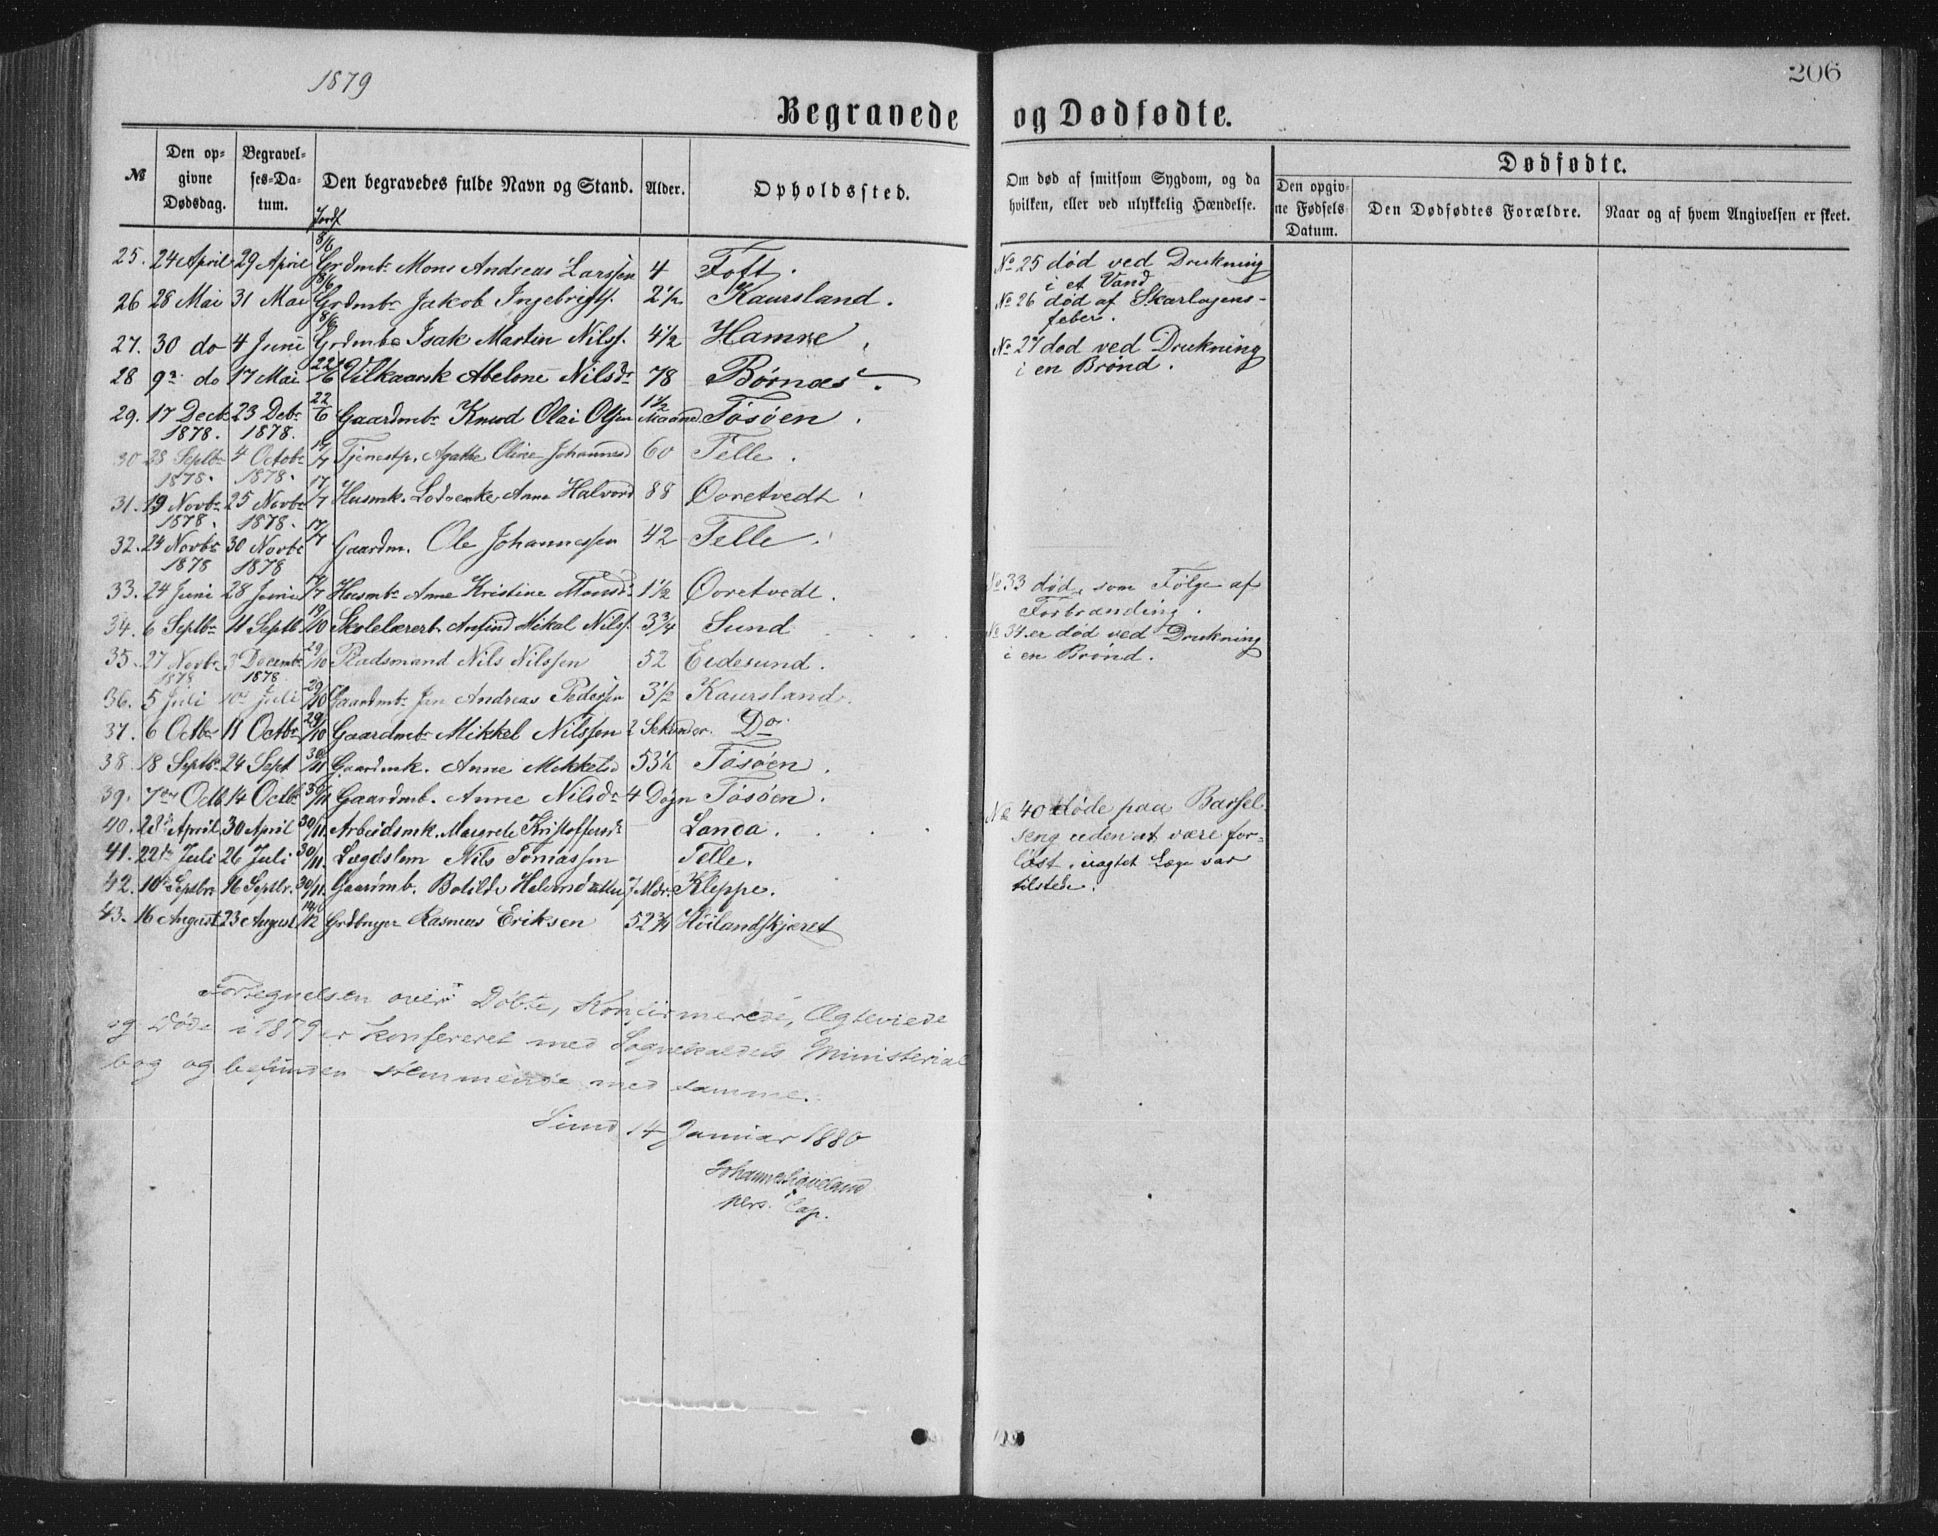 1879
206
Begravede og Dødfødte.
№
Den opgivne Dødsdag.
Begravelses-Datum.
Jordf
Den begravedes fulde Navn og Stand.
Alder.
Opholdssted.
Om død af smitsom Sygdom, og da hvilken, eller ved ulykkelig Hændelse.
Dødfødte.
Den opgivne Fødsels Datum.
Den Dødfødtes Forældre.
Naar og af hvem Angivelsen er skeet.
25. 24 April 29 April 8/6 Grdmbn Mons Andreas Larssen 4 Toft.
26 28 Mai 31 Mai 8/6 Grdmbn Jakob Ingebrigts. 2 1/2 Kaursland.
27. 30 do 4 Juni 8/6 Grdmbn Isak Martin Nilss. 4 1/2 Hamre.
28 9de do 17 Mai 22/6 Vilkaarsk Abelone Nilsdr 78 Børnæs.
29. 17 Decbr 1878. 23 Debr 1878. 22/6 Gaardmbn Knud Olai Olsen 1 1/2 Maaned Tøsøen.
30 28 Septbr 1878. 4 Octobr 1878. 17/7 Tjenestp. Agathe Oline Johannesd 60 Telle.
31. 19 Novbr 1878. 25 Novbr 1878. 17/7 Husmk. Anne Halvord 88 Ovretvedt.
32. 24 Novbr 1878 30 Novbr 1878 17/7 Gaardm. Ole Johannessen 42 Telle.
33. 24 Juni 28 Juni 17/7 Husmbn Anne Kristine Monsd. 1 1/2 Ovretvedt.
34. 6 Septbr 11 Septb 19/10 Skolelærerb Ansind Mikal Nilss. 3 3/4 Sund
35. 27 Novbr 1878 3 Decembr 1878 29/10 Pladsmand Nils Nilssen 52 Eidesund.
36. 5 Juli 10de Juli 29/10 Gaardmbn Jan Andreas Pederssen 3 1/2 Kaursland.
37. 6 Octbr 11 Octbr 29/10 Gaardmbn Mikkel Nilssen 2 Sekunder. Do
38. 18 Septbr 24 Sept 30/11 Gaardmk. Anne Mikkelsd 53 1/2 Tøsøen.
39. 7de Octb 14 Octbr 30/11 Gaardmb. Anne Nilsdr 4 Døgn Tøsøen.
40. 28de April 30 April 30/11. Arbeidsmk. Margrete Kristoffersdr Landa.
41. 22de Juli 26 Juli 30/11. Lægdslem Nils Toniassen Telle.
42. 10de Septbr 16 Septbr. 30/11. Gaardmb. Botilde 7 Mdr. Kleppe.
43. 16 August 23 August 14/12 Grdbruger Rasmus Eriksen 52 3/4 Høilandskjæret
No 25 død ved Drukning
i et Vand
No 26 død af Skarlagens-
feber.
No 27 død ved Drukning
i en Brønd.
No 33 død, som Følge af
Forbrænding.
No 34 er død ved Drukning
i en Brønd.
No 40 døde paa Barsel
seng uden at være for-
løst, uagtet Læge var
tilstede.
Fortegnelsen over Døbte, Konfirmerede, Ægteviede
og Døde i 1879 er konfereret med Sognekaldets Ministerial
bog og befunden stemmende med samme.
Sund 14 Januar 1880
pers. Cap.